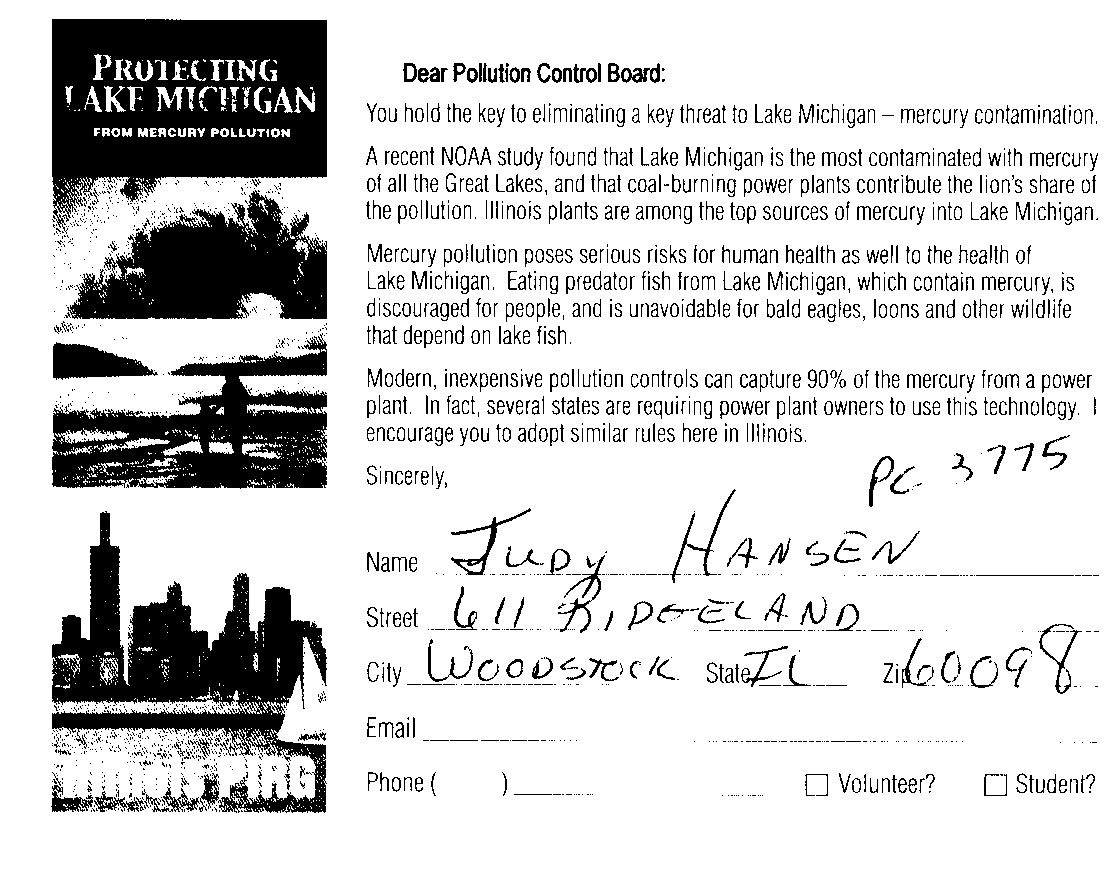 PROTECTING
LAKE MICHIGAN
FROM MERCURY POLLUTION
Illinois PIRG
Dear Pollution Control Board:
You hold the key to eliminating a key threat to Lake Michigan – mercury contamination.
A recent NOAA study found that Lake Michigan is the most contaminated with mercury
of all the Great Lakes, and that coal-burning power plants contribute the lion's share of
the pollution. Illinois plants are among the top sources of mercury into Lake Michigan.
Mercury pollution poses serious risks for human health as well to the health of
Lake Michigan. Eating predator fish from Lake Michigan, which contain mercury, is
discouraged for people, and is unavoidable for bald eagles, loons and other wildlife
that depend on lake fish.
Modern, inexpensive pollution controls can capture 90% of the mercury from a power
plant. In fact, several states are requiring power plant owners to use this technology. I
encourage you to adopt similar rules here in Illinois.
Sincerely,
PC 3775
Name JUDY HANSEN
Street 611 RIDGELAND
City WOODSTOCK State IL Zip 60098
Email
Phone ( ) Volunteer? Student?